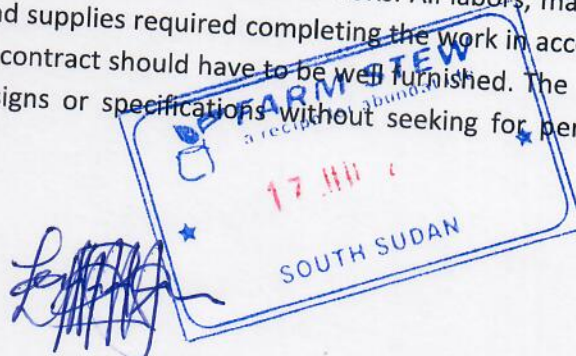 All labors, ma
nd supplies required completing the work in acc
contract should have to be well furnished. The
signs or specifications without seeking for per
FARM STEW
a recipe of abundant
17
SOUTH SUDAN